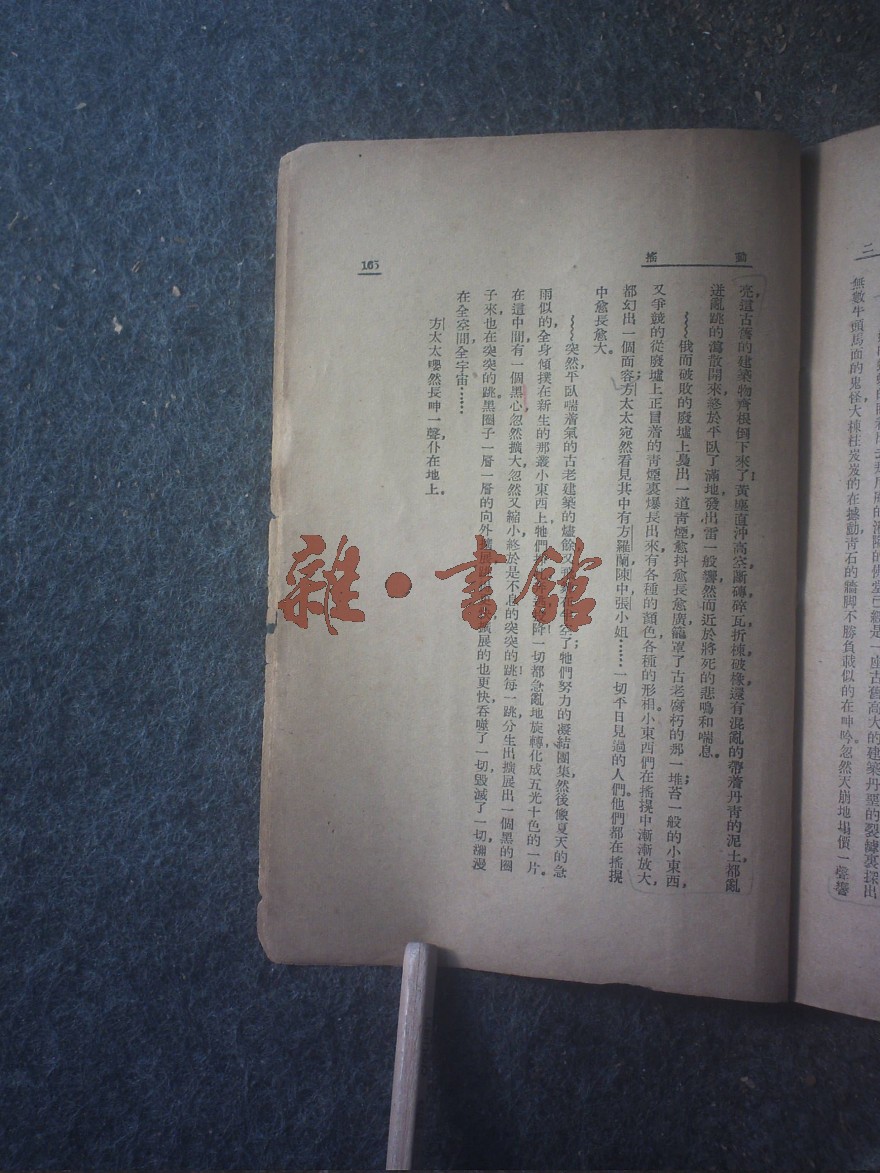 三
無數牛頭馬面的鬼怪大揀柱岌岌的在撼動靑石的牆脚不勝負載似的在呻吟忽然天崩地塌價一聲響
動搖
亮,這古舊的建築物齊根倒下來了!黃塵直沖高空,斷磚碎瓦折棟破椽,還有混亂的帶着丹靑的泥土都亂
迸亂跳的瀉散開來,終於平臥了滿地,發出雷一般響然而近於將死的悲鳴和喘息。
~~~~俄而破敗的廢墟上裊出一道靑煙,愈抖愈長,愈廣,籠罩了古老腐朽的那一堆;苔一般的小東西,
又爭競的從廢墟上正冒着的靑煙裏爆長出來,有各種的顏色,各種的形相。小東西們在搖提中漸漸放大,
都幻出一個面容;方太太宛然看見其中有方羅蘭,陳中,張小姐……一切平日見過的人們。他們都在搖提
中愈長愈大。
~~~~突然,平臥喘着氣的古老建築的燼餘又空了;牠們努力的凝結團集,然後像夏天的急
雨似的,全身傾撲在新生的那叢小東西上,牠們降!一切都急亂地旋轉,化成五光十色的一片。
在這中間,有一個黑心,忽然擴大,忽然又縮小,終於是不息的突突的跳!每一跳,分生出擴展出一個黑的圈
子來,也在突突的跳。黑圈子一層一層的向外擴展的也更快,吞噬了一切,毀滅了一切,瀰漫
在全空間,全宇宙……
方太太嚶然長呻一聲,仆在地上。
163
雜·書館